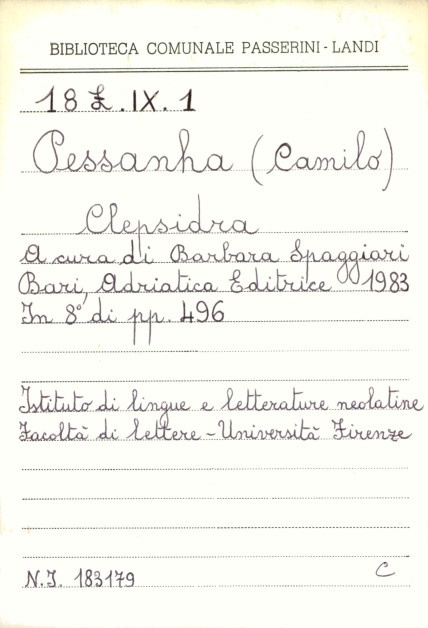 BIBLIOTECA COMUNALE PASSERINI - LANDI
18 Z. IX. 1
Pessanha (Camilo)
Clepsidra
A cura di Barbara Spaggiari
Bari, Adriatica Editrice 1983
In 8° di pp. 496
Istituto di lingue e letterature neolatine
Facoltà di lettere - Università Firenze
N.I. 183179 C